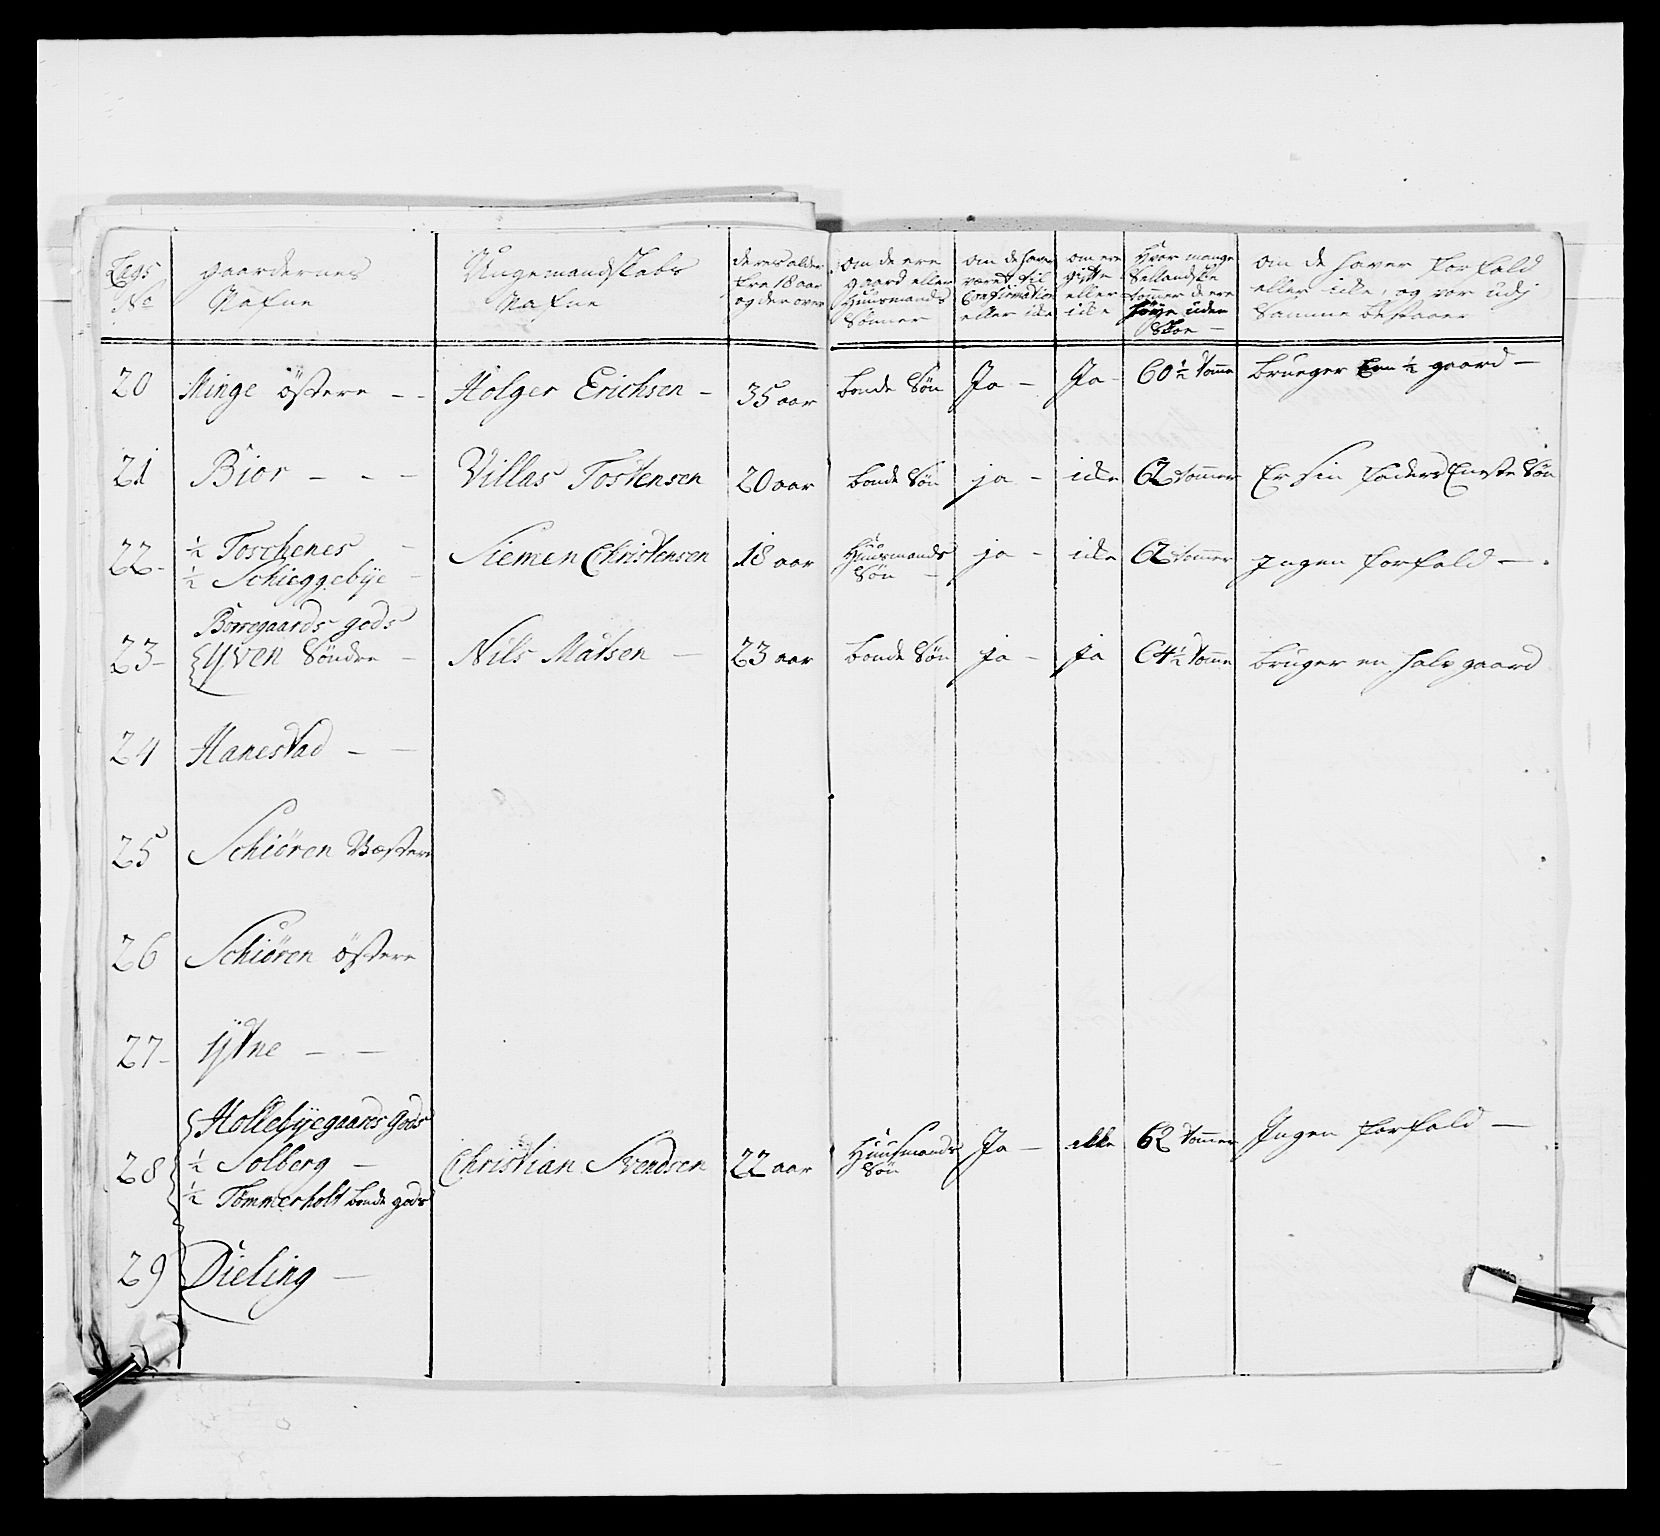 Legs No | gaardernes Nafne | Ungemandskabs Nafne | deres alder fra 18 aar og der over | om de ere gaard eller Huusmands Sønner | om de haver været til Confirmation eller icke | om ere gifte eller icke | Hvor mange Sellandske tommer de ere høye uden Skoe | om de haver forfald eller icke, og vor udj Samme bestaaer
20 | Minge østere | Holger Erichsen | 35 aar | bonde Søn | Ja | Ja | 60 1/2 tomme | brueger Een 1/2 gaard
21 | Biør | Villas Tostensen | 20 aar | bonde Søn | ja | icke | 62 tommer | Er sin faders Eneste Søn
22 | 1/2 Toschenes 1/2 Schieggebÿe | Siemen Christensen | 18 aar | Huusmands Søn | ja | icke | 62 tommer | Ingen forfald
23 | Borregaards gods Ÿven Søndre | Nils Matsen | 23 aar | bonde Søn | ja | ja | 64 1/2 tomme | bruger en halv gaard
24 | Hanestad
25 | Schiøren Væstere
26 | Schiøren østere
27 | Ÿtne
28 | Hollebÿegaards Gods 1/2 Solberg 1/2 Tømmerholt bonde gods | Christian Svendsen | 22 aar | Huusmands Søn | Ja | icke | 62 tommer | Ingen forfald
29 | Dieling